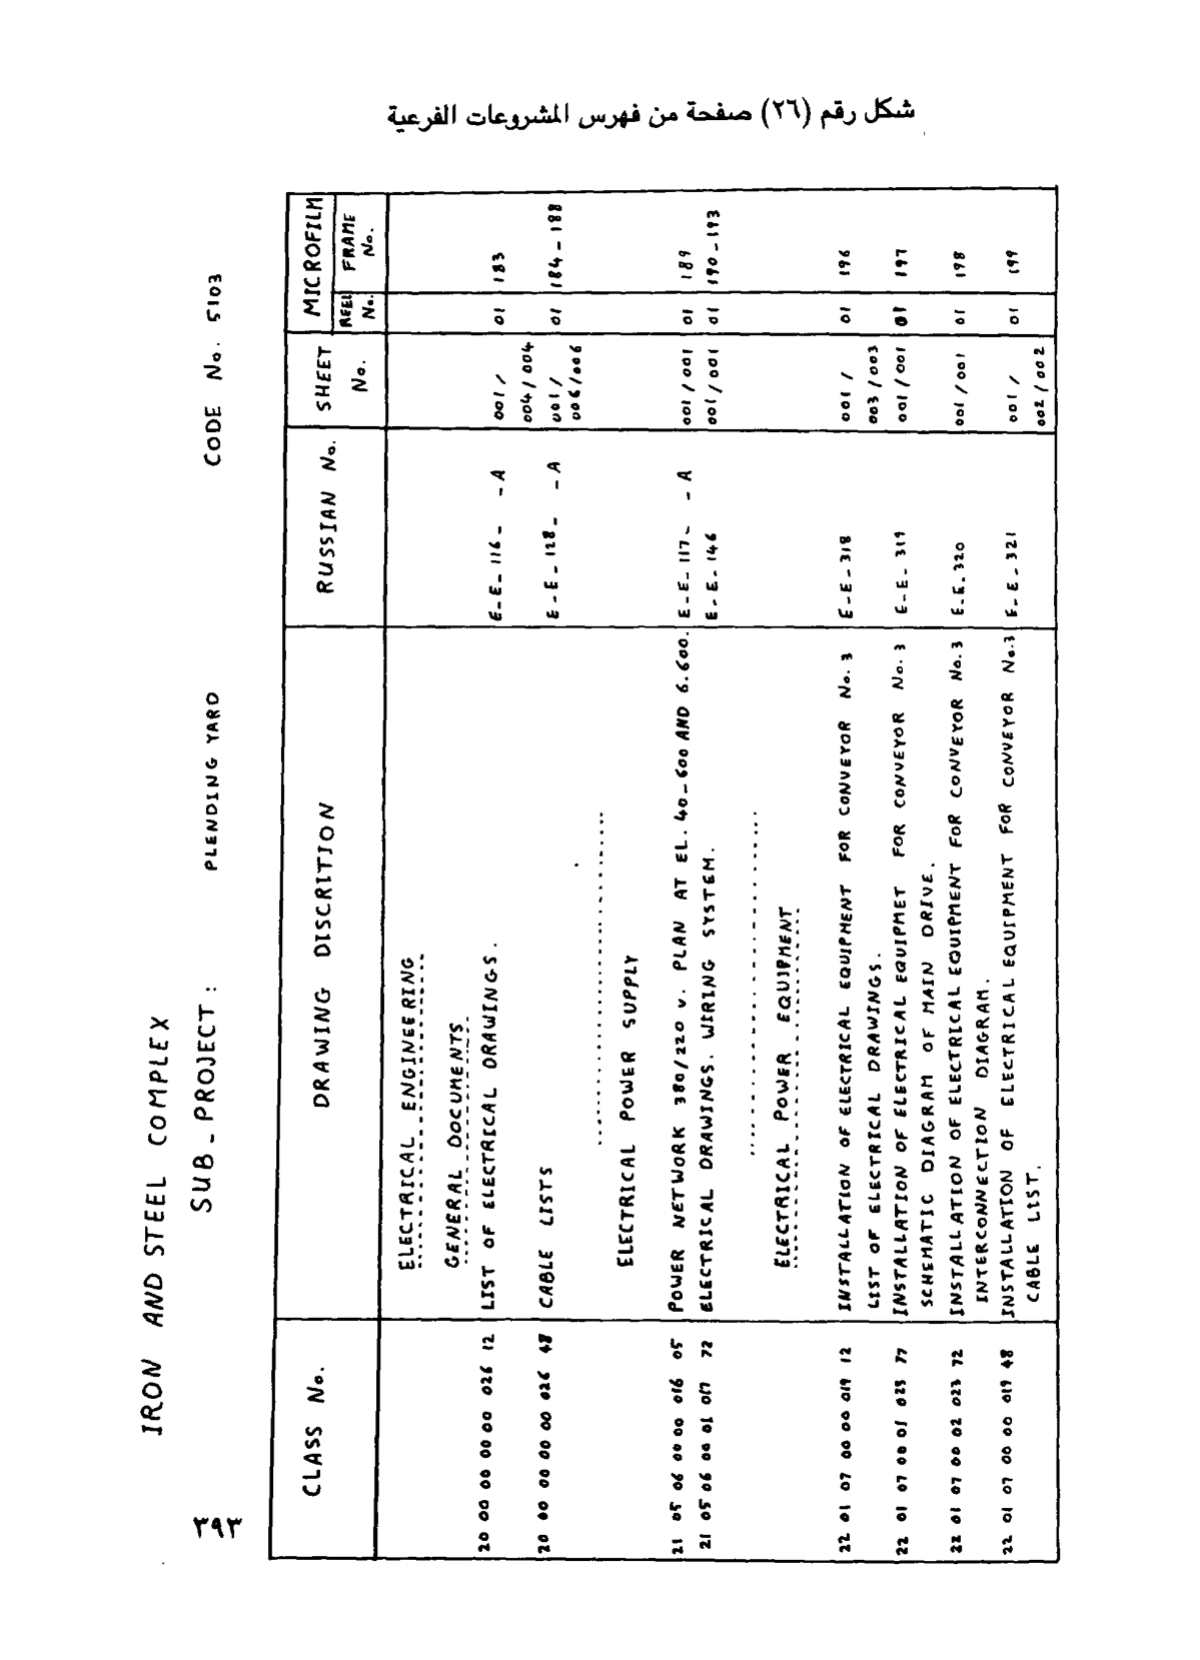 شكل رقم (٢٦) صفحة من فهرس المشروعات الفرعية
IRON AND STEEL COMPLEX
SUB_PROJECT: PLENDING YARO CODE No. 5103
CLASS No. DRAWING DISCRITION RUSSIAN No. SHEET No. MICROFILM
REEL No. FRAME No.
ELECTRICAL ENGINEERING
GENERAL DOCUMENTS.
20 00 00 00 00 026 12 LIST OF ELECTRICAL DRAWINGS. E-E-116- -A 001/ 01 183
004/004
20 00 00 00 00 026 48 CABLE LISTS E-E-128- -A 001/ 01 184-188
006/006
ELECTRICAL POWER SUPPLY
21 05 06 00 00 016 05 POWER NETWORK 380/220 V. PLAN AT EL. 40-600 AND 6.600. E-E-117- -A 001/001 01 189
21 05 06 00 01 017 72 ELECTRICAL DRAWINGS. WIRING SYSTEM. E-E-146 001/001 01 190-193
ELECTRICAL POWER EQUIPMENT
22 01 07 00 00 019 12 INSTALLATION OF ELECTRICAL EQUIPMENT FOR CONVEYOR No. 3 E-E-318 001/ 01 196
LIST OF ELECTRICAL DRAWINGS. 003/003
22 01 07 00 01 023 77 INSTALLATION OF ELECTRICAL EQUIPMET FOR CONVEYOR No. 3 E-E-319 001/001 01 197
SCHEMATIC DIAGRAM OF MAIN DRIVE.
22 01 07 00 02 023 72 INSTALLATION OF ELECTRICAL EQUIPMENT FOR CONVEYOR No. 3 E-E-320 001/001 01 198
INTERCONNECTION DIAGRAM.
22 01 07 00 00 019 48 INSTALLATION OF ELECTRICAL EQUIPMENT FOR CONVEYOR No.3 E-E-321 001/ 01 199
CABLE LIST. 002/002
٣٩٣